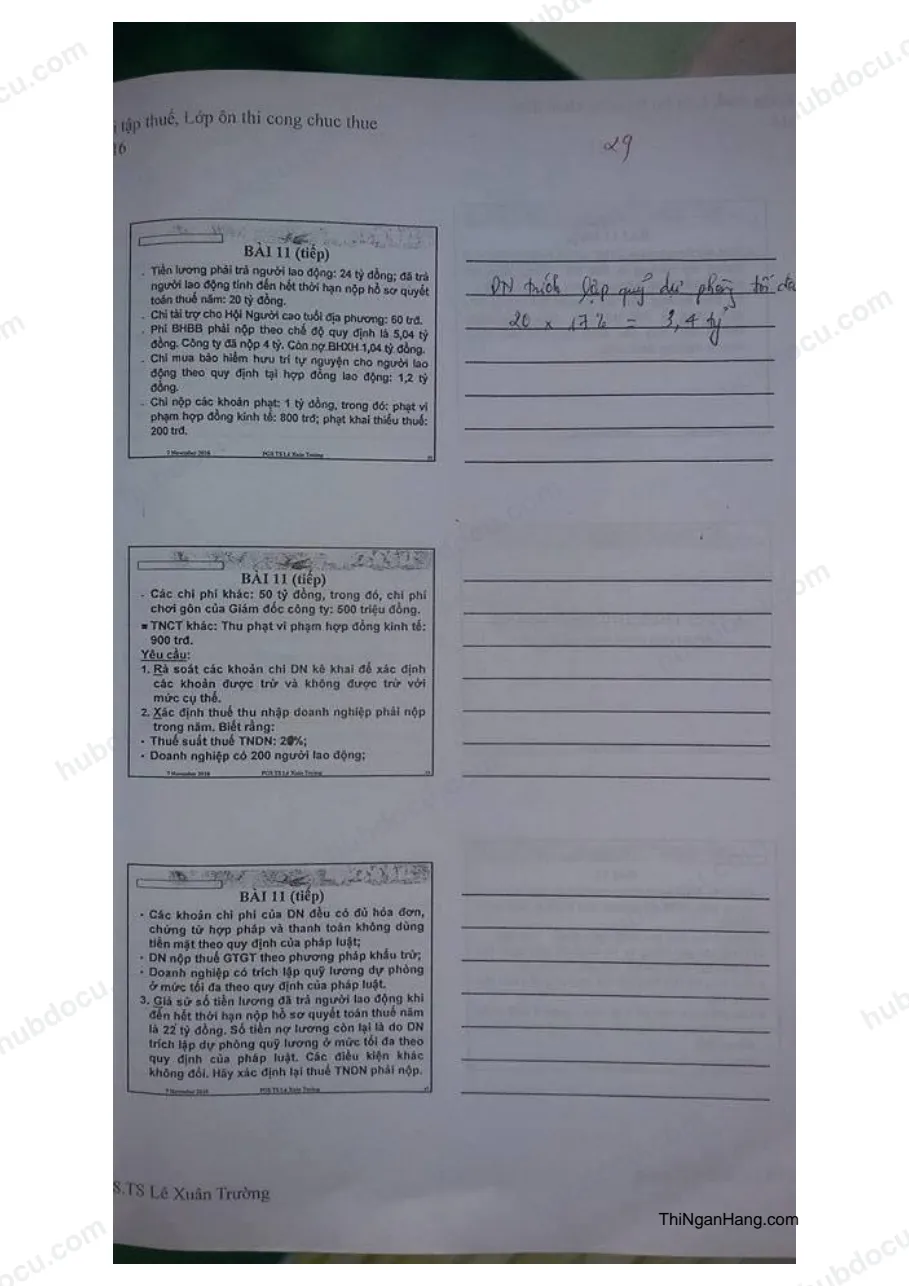 i tập thuế, Lớp ôn thi cong chuc thue
16
29
BÀI 11 (tiếp)
- Tiền lương phải trả người lao động: 24 tỷ đồng; đã trả
người lao động tính đến hết thời hạn nộp hồ sơ quyết
toán thuế năm: 20 tỷ đồng.
- Chi tài trợ cho Hội Người cao tuổi địa phương: 60 trđ.
- Phí BHBB phải nộp theo chế độ quy định là 5,04 tỷ
đồng. Công ty đã nộp 4 tỷ. Còn nợ BHXH 1,04 tỷ đồng.
- Chi mua bảo hiểm hưu trí tự nguyện cho người lao
động theo quy định tại hợp đồng lao động: 1,2 tỷ
đồng.
- Chi nộp các khoản phạt: 1 tỷ đồng, trong đó: phạt vi
phạm hợp đồng kinh tế: 800 trđ; phạt khai thiếu thuế:
200 trđ.
7 November 2016 PGS.TS Lê Xuân Trường
DN trích lập quỹ dự phòng tối đa
20 x 17% = 3,4 tỷ
BÀI 11 (tiếp)
- Các chi phí khác: 50 tỷ đồng, trong đó, chi phí
chơi gôn của Giám đốc công ty: 500 triệu đồng.
■ TNCT khác: Thu phạt vi phạm hợp đồng kinh tế:
900 trđ.
Yêu cầu:
1. Rà soát các khoản chi DN kê khai để xác định
các khoản được trừ và không được trừ với
mức cụ thể.
2. Xác định thuế thu nhập doanh nghiệp phải nộp
trong năm. Biết rằng:
• Thuế suất thuế TNDN: 20%;
• Doanh nghiệp có 200 người lao động;
7 November 2016 PGS.TS Lê Xuân Trường
BÀI 11 (tiếp)
• Các khoản chi phí của DN đều có đủ hóa đơn,
chứng từ hợp pháp và thanh toán không dùng
tiền mặt theo quy định của pháp luật;
• DN nộp thuế GTGT theo phương pháp khấu trừ;
• Doanh nghiệp có trích lập quỹ lương dự phòng
ở mức tối đa theo quy định của pháp luật.
3. Giả sử số tiền lương đã trả người lao động khi
đến hết thời hạn nộp hồ sơ quyết toán thuế năm
là 22 tỷ đồng. Số tiền nợ lương còn lại là do DN
trích lập dự phòng quỹ lương ở mức tối đa theo
quy định của pháp luật. Các điều kiện khác
không đổi. Hãy xác định lại thuế TNDN phải nộp.
7 November 2016 PGS.TS Lê Xuân Trường
S.TS Lê Xuân Trường
ThiNganHang.com
hubdocu.com